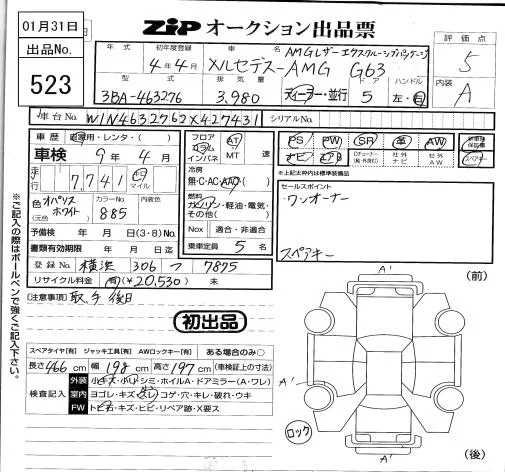 01月31日
出品No.
523
ZIP オークション出品票
年式 初年度登録 車名
4年4月
メルセデス-AMG G63
AMGレザーエクスクルーシブパッケージ
評価点
5
内装
A
型式 排気量 ドア ハンドル
3BA-463276 3,980 ディーラー・並行 5 左・右
車台No. W1N4632762X427431 シリアルNo.
車歴 自家用・レンタ・( )
車検 9年4月
走行 7,741 キロ マイル
色(元色) オパリスホワイト カラーNo. 885 内装色
予備検 年 月 日(3・8)No.
書類有効期限 年 月 日迄
登録No. 横浜 306 つ 7875
リサイクル料金 有(¥20,530) 未
(注意事項) 取、手 後日
フロア コラム インパネ AT MT 速
冷房 無・C・AC・AAC( )
燃料 ガソリン・軽油・電気・その他( )
Nox 適合・非適合
乗車定員 5 名
PS PW SR 革 AW
ナビ エアB Dチューナー(純・外含む) 社外ナビ 社外AW
新車時保証書
スペアキー
※上記太枠内は標準装備品
セールスポイント
ワンオーナー
スペアキー
初出品
※ご記入の際はボールペンで強くご記入下さい。
スペアタイヤ[有] ジャッキ工具[有] AWロックキー[有] ある場合のみ○
長さ466cm 幅198cm 高さ197cm (車検証上の寸法)
検査記入
外装 小キズ・小凹・シミ・ホイルA・ドアミラー(A・ワレ)
室内 ヨゴレ・キズ・スレ・コゲ・穴・キレ・破れ・ウキ
FW トビ石・キズ・ヒビ・リペア跡・X要ス
A'
(前)
A'
ロック
A'
(後)